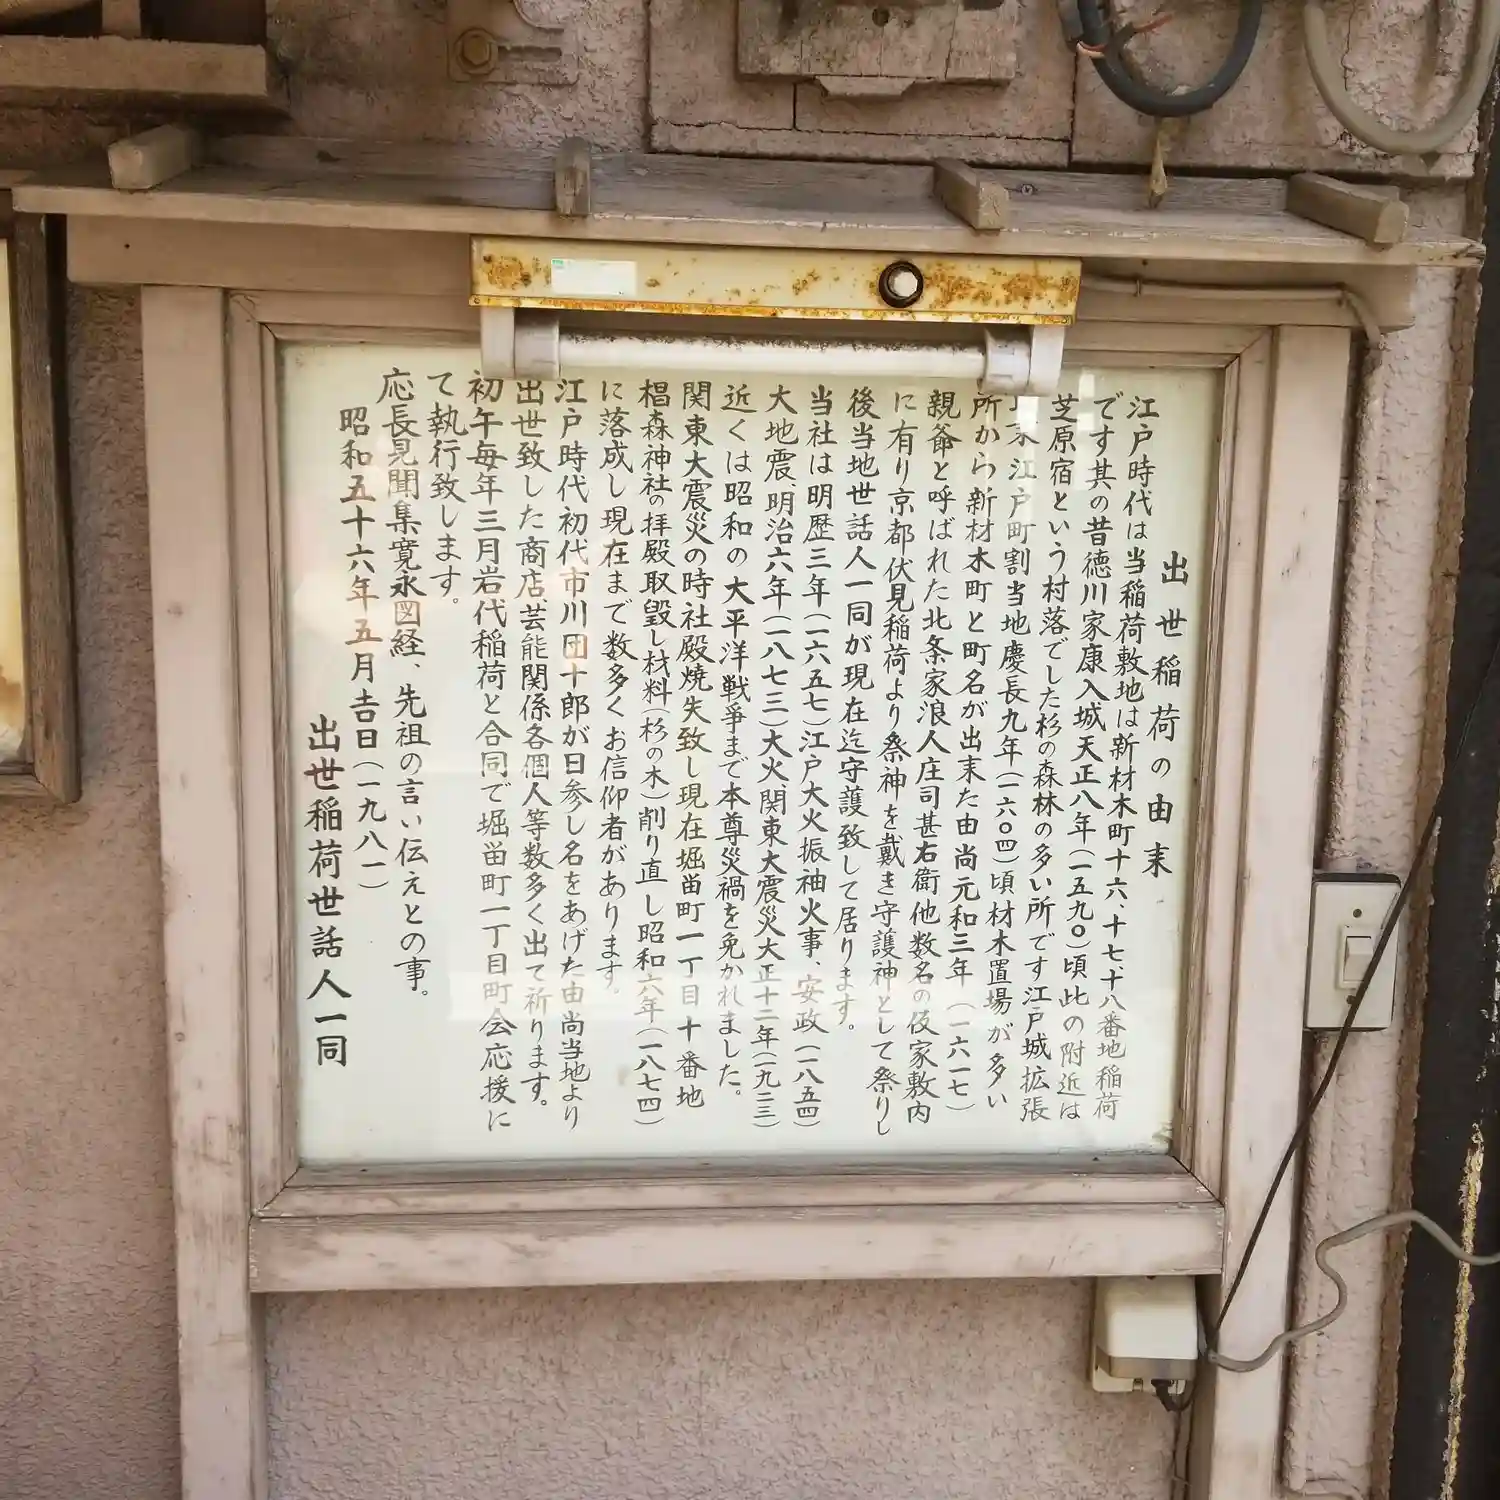 出世稲荷の由来
江戸時代は当稲荷敷地は新材木町十六、十七、十八番地稲荷
です其の昔徳川家康入城天正八年(一五九〇)頃此の附近は
芝原宿という村落でした杉の森林の多い所です江戸城拡張
末江戸町割当地慶長九年(一六〇四)頃材木置場が多い
所から新材木町と町名が出来た由尚元和三年(一六一七)
親爺と呼ばれた北条家浪人庄司甚右衛他数名の仮家敷内
に有り京都伏見稲荷より祭神を戴き守護神として祭りし
後当地世話人一同が現在迄守護致して居ります。
当社は明歴三年(一六五七)江戸大火振袖火事、安政(一八五四)
大地震、明治六年(一八七三)大火、関東大震災大正十二年(一九二三)
近くは昭和の大平洋戦爭まで本尊災禍を免かれました。
関東大震災の時社殿焼失致し現在堀留町一丁目十番地
椙森神社の拝殿取毀し材料(杉の木)削り直し昭和六年(一八七四)
に落成し現在まで数多くお信仰者があります。
江戸時代初代市川団十郎が日参し名をあげた由尚当地より
出世致した商店、芸能関係各個人等数多く出て祈ります。
初午毎年三月岩代稲荷と合同で堀留町一丁目町会応援に
て執行致します。
応長見聞集寛永図経、先祖の言い伝えとの事。
昭和五十六年五月吉日(一九八一)
出世稲荷世話人一同